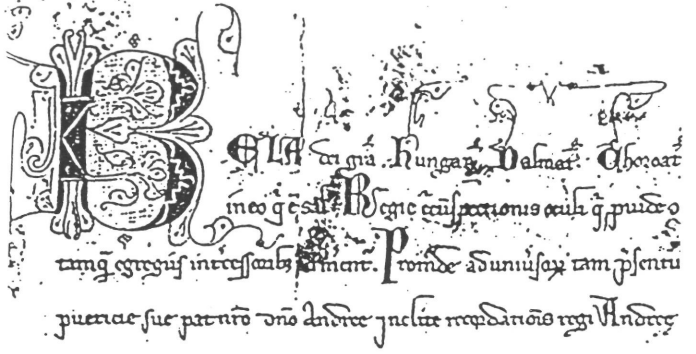 BELA di gra. Hungar. Dalmat. Choroat
in eo q e sal. Regie circuspectionis oculi q puide o
tamq egregiis intercessoribz Proinde ad univsor tam psentu
puericie sue patri nro dno Andree inclite recordationis regi Andree